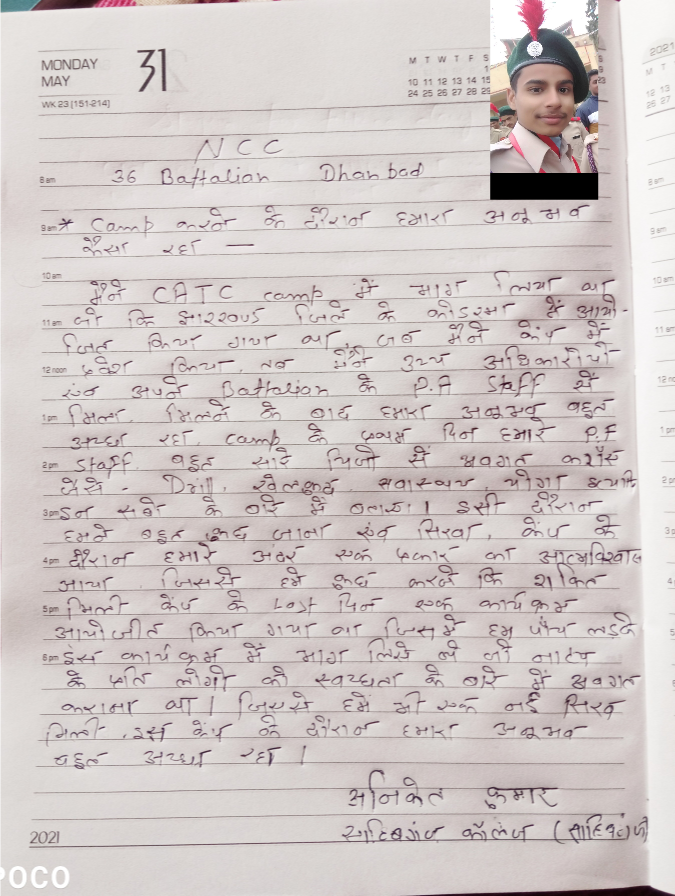 MONDAY
MAY
31
WK 23 (151-214)
M T W T F S
1
10 11 12 13 14 15
24 25 26 27 28 29
2021
NCC
8 am 36 Battalian Dhanbad
9 am * Camp करने के दौरान हमारा अनूभव
कैसा रहा —
10 am
मैंने CATC camp में भाग लिया था
11 am जो कि झारखण्ड जिले के कोडरमा में आयो-
जित किया गया था जब मैंने कैंप में
12 noon प्रवेश किया, तब मैंने उच्य अधिकारीयो
एंव अपने Battalian के P.A Staff से
1 pm मिला, मिलने के बाद हमारा अनूभव बहुत
अच्छा रहा, camp के प्रथम दिन हमारे P.F
2 pm staff बहुत सारे चिजो से अवगत कराएँ
जैसे - Drill, खेलकूद, सवास्थय, योगा इत्यादि
3 pm इन सबो के बारे में बताया। इसी दौरान
हमने बहुत कुछ जाना एंव सिखा, कैंप के
4 pm दौरान हमारे अंदर एक प्रकार का आत्मविश्वास
आया जिससे हमे कुछ करने कि शक्ति
5 pm मिली कैंप के Last दिन एक कार्यक्रम
आयोजीत किया गया था जिसमें हम पाँच लडके
6 pm इस कार्यक्रम में भाग लिये थे जो नाटय
के प्रति लोगो को स्वच्छता के बारे में अवगत
कराना था। जिससे हमें भी एक नई सिख
मिली, इस कैंप के दौरान हमारा अनूभव
बहुत अच्छा रहा।
अनिकेत कुमार
2021 साहिबगंज कॉलेज (साहिबगंज)
POCO